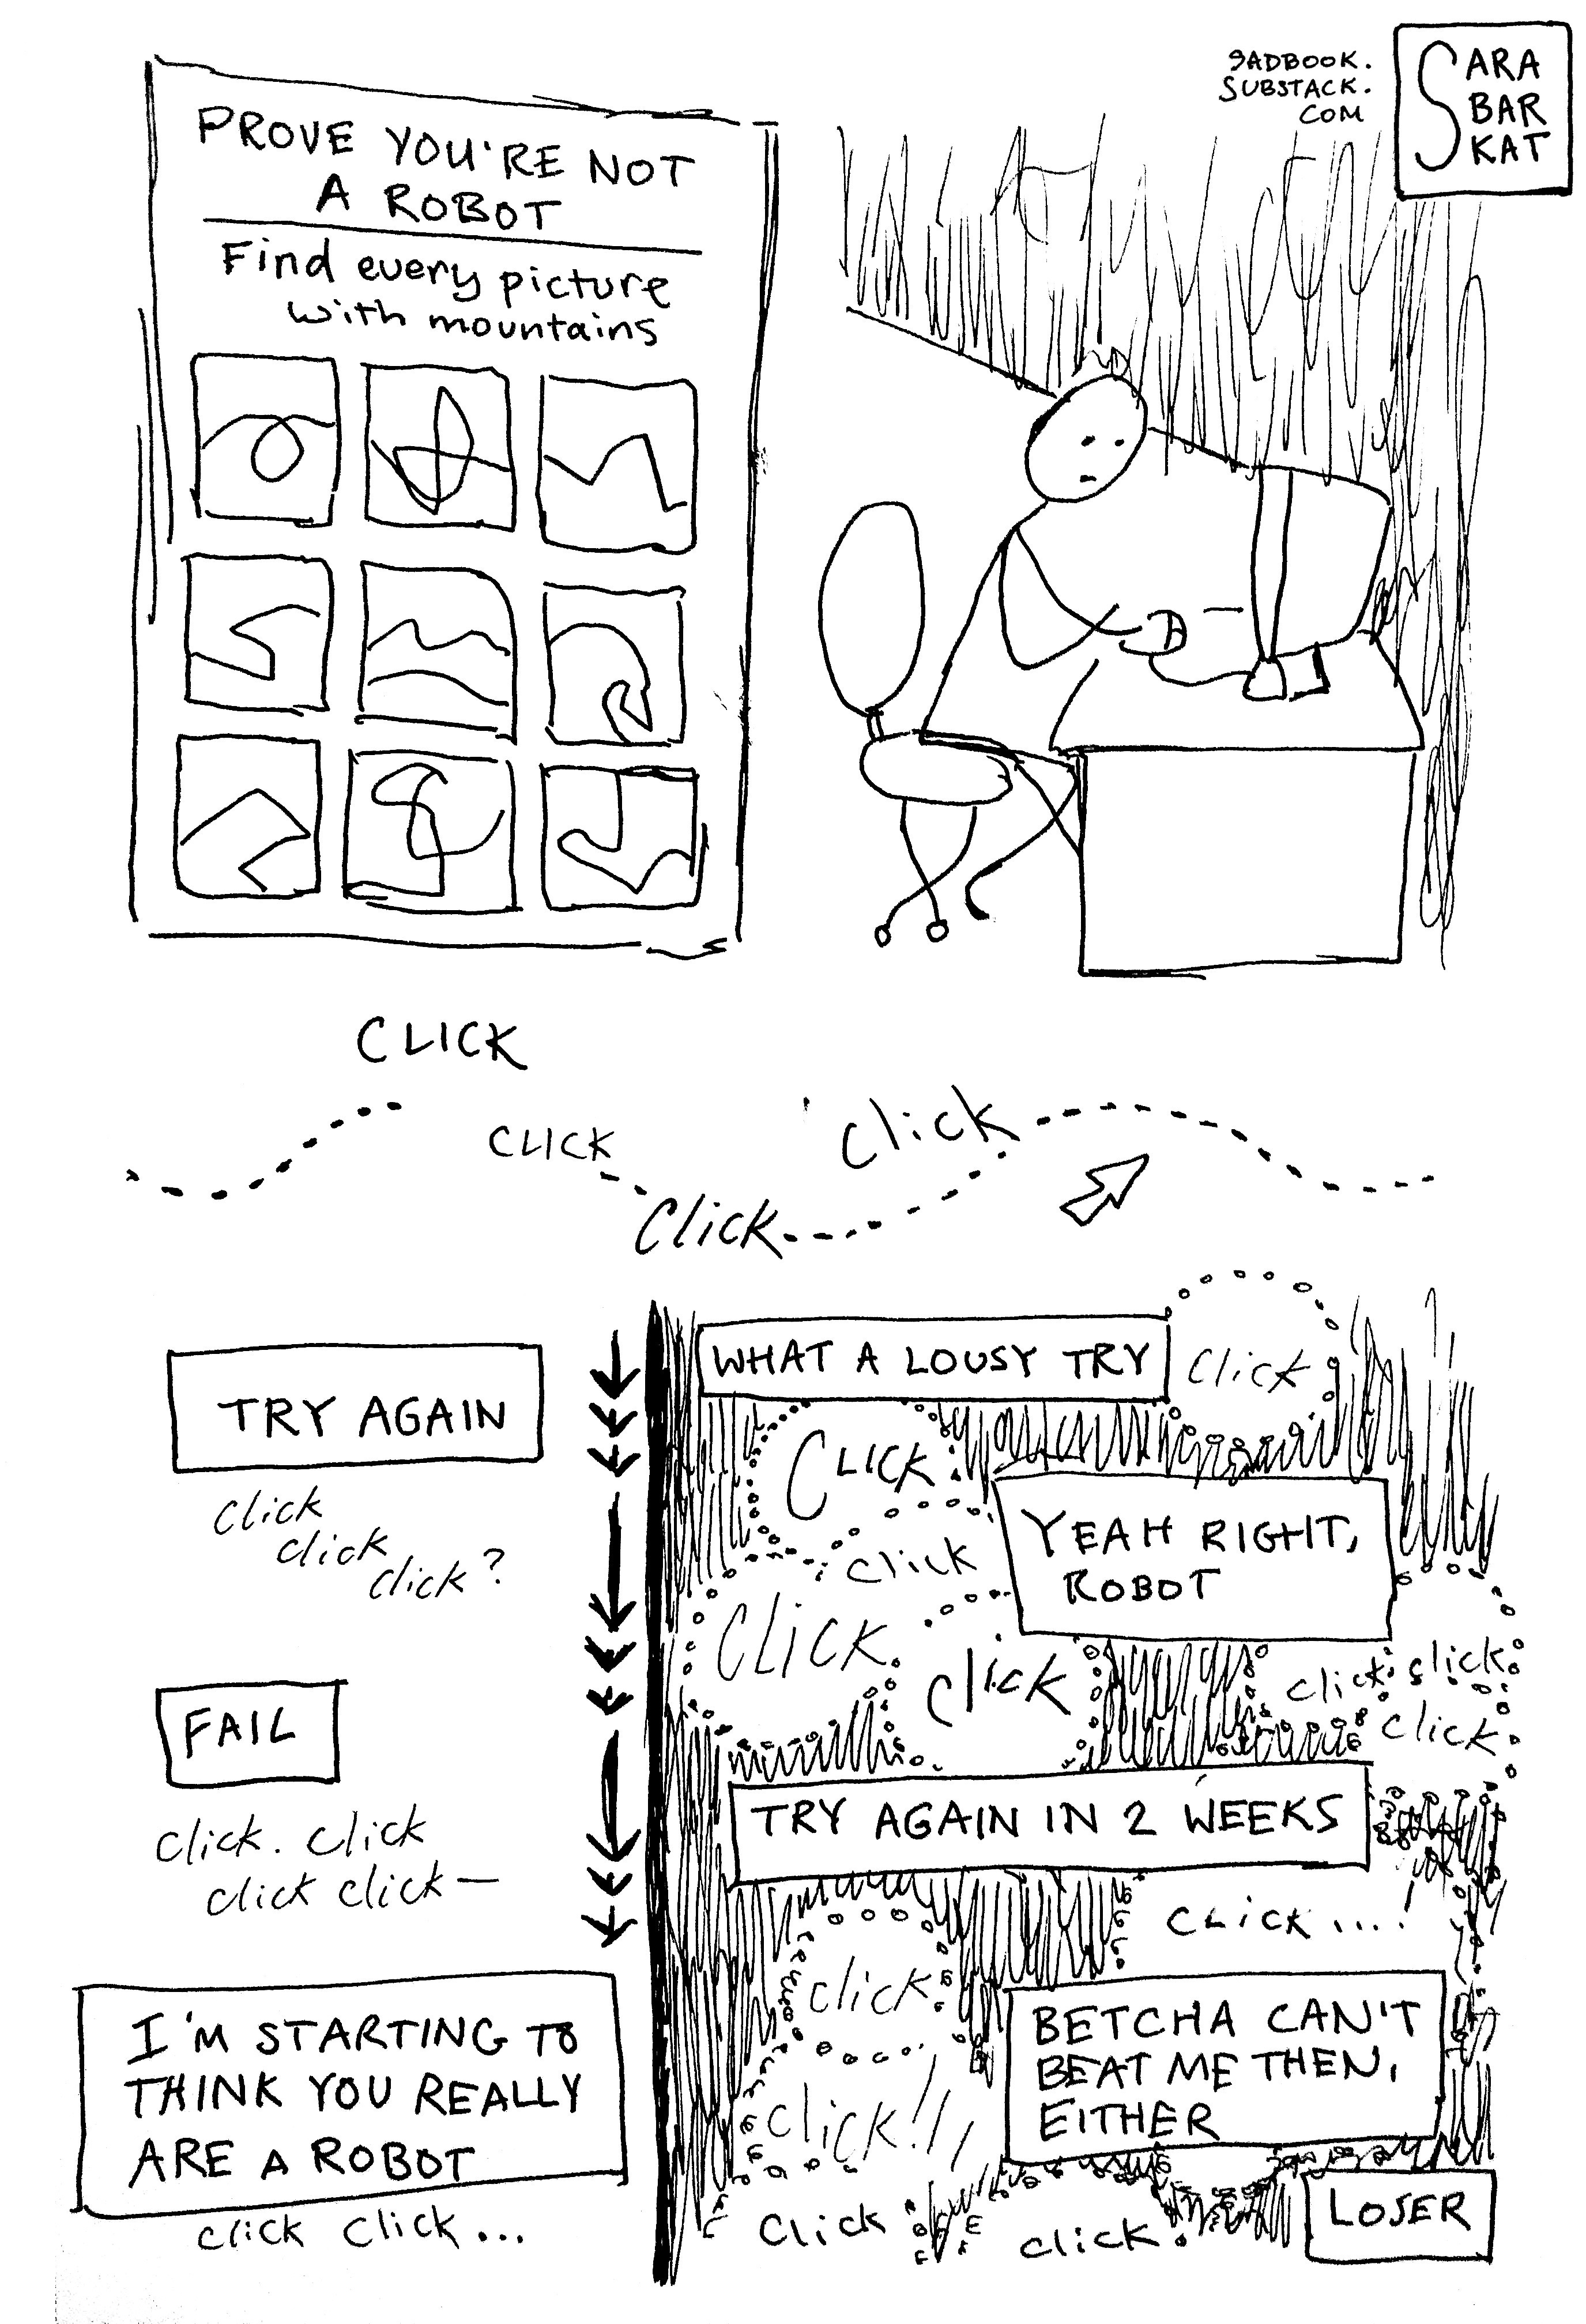 SADBOOK.
SUBSTACK.
COM
SARA
BAR
KAT
PROVE YOU'RE NOT
A ROBOT
Find every picture
with mountains
CLICK
CLICK
Click
Click
TRY AGAIN
click
click
click?
FAIL
click. click
click click—
I'M STARTING TO
THINK YOU REALLY
ARE A ROBOT
click click...
WHAT A LOUSY TRY
Click
CLICK
click
YEAH RIGHT,
ROBOT
CLICK
click
click click
click
TRY AGAIN IN 2 WEEKS
CLICK....!
click
BETCHA CAN'T
BEAT ME THEN,
EITHER
click!!,
Click
click
LOSER